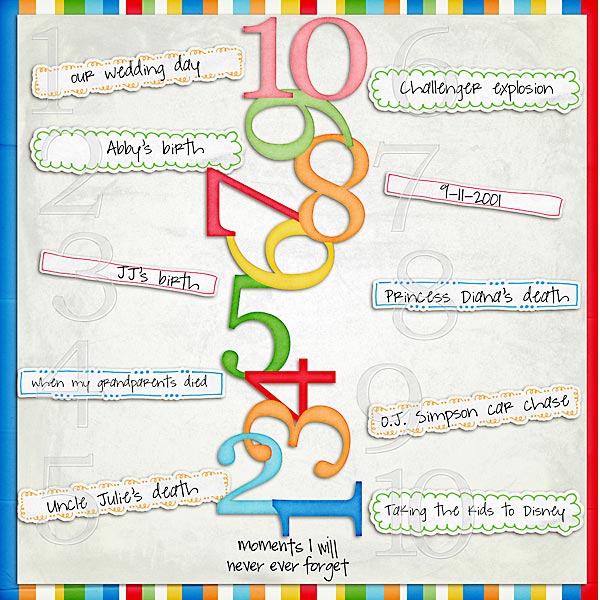 1 our wedding day
2 Abby's birth
3 JJ's birth
4 when my grandparents died
5 Uncle Julie's death
10
9
8
7
6
5
4
3
2
1
moments I will
never ever forget
6 Challenger explosion
7 9-11-2001
8 Princess Diana's death
9 O.J. Simpson car chase
10 Taking the kids to Disney